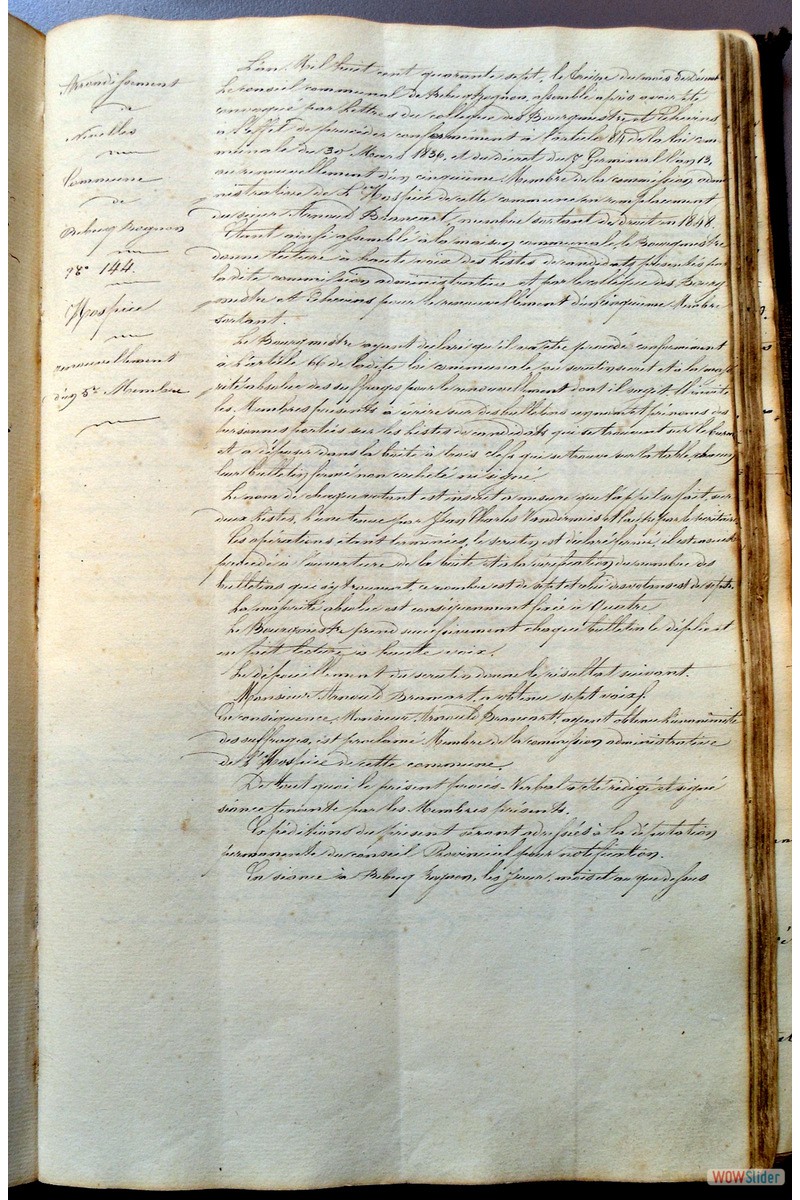 Arrondissement
de
Nivelles
Commune
de
Rebecq Rognon
N° 144.
Hospice
renouvellement
d'un 5e Membre
L'an Mil huit cent quarante sept, le treize du mois de Décembre
Le conseil communal de Rebecq Rognon, assemblé après avoir été
convoqué par lettres du collège des Bourgmestre et Echevins
à l'effet de procéder conformément à l'article 84 de la loi com-
munale du 30 Mars 1836, et du décret du 7 Germinal l'an 13,
au renouvellement d'un cinquième Membre de la commission admi
nistrative de l'Hospice de cette commune en remplacement
du sieur Arnould Brancart, membre sortant de droit en 1848.
Etant ainsi assemblé à la maison communale, le Bourgmestre
donne lecture à haute voix des listes de candidats présentés par
la dite commission administrative et par le collège des Bourg
mestre et Echevins pour le renouvellement d'un cinquième Membre
sortant.
Le Bourgmestre ayant déclaré qu'il va être procédé conformément
à l'article 66 de la dite loi communale, au scrutin secret et à la majo
rité absolue des suffrages pour le renouvellement dont il s'agit, Il invite
les Membres présents à écrire sur des bulletins un nom et prénoms des
personnes portées sur les listes de candidats qui se trouvent sur le bureau
et à déposer dans la boite à trois clefs qui se trouve sur la table, chacun
leur bulletin fermé non cacheté ni signé.
Le nom de chaque votant est inscrit à mesure que l'appel se fait, sur
deux listes, l'une tenue par Jean Charles Vandermies et l'autre par le secrétaire
Les opérations étant terminées, le scrutin est déclaré fermé, il est
procédé à l'ouverture de la boite et à la vérification du nombre des
bulletins qui s'y trouvent, ce nombre est de sept et celui des votans est de sept.
La majorité absolue est conséquemment fixée à Quatre
Le Bourgmestre prend successivement chaque bulletin le déplie et
en fait lecture à haute voix.
Le dépouillement du scrutin donne le résultat suivant.
Monsieur Arnould Brancart, a obtenu sept voix.
En conséquence, Monsieur Arnould Brancart, ayant obtenu l'unanimité
des suffrages, est proclamé Membre de la commission administrative
de l'Hospice de cette commune.
De tout quoi le présent procès-Verbal a été rédigé et signé
séance tenante par les Membres présents.
Expéditions du présent seront adressées à la députation
permanente du conseil Provincial pour notification.
En séance à Rebecq Rognon, les jour, mois et an que dessus
WOWSlider